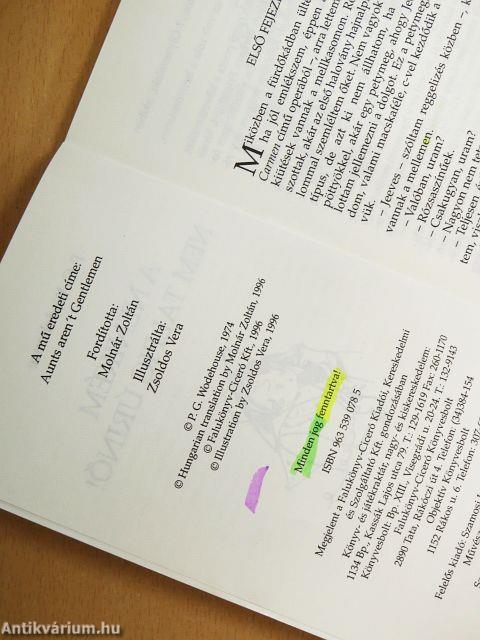 A mű eredeti címe:
Aunts aren´t Gentlemen
Fordította:
Molnár Zoltán
Illusztrálta:
Zsoldos Vera
© P. G. Wodehouse, 1974
© Hungarian translation by Molnár Zoltán, 1996
© Falukönyv-Ciceró Kft., 1996
© Illustration by Zsoldos Vera, 1996
Minden jog fenntartva!
ISBN 963 539 078 5
Megjelent a Falukönyv-Ciceró Kiadói, Kereskedelmi
és Szolgáltató Kft. gondozásában
Könyv- és játékraktár, nagy- és kiskereskedelem:
1134 Bp., Kassák Lajos utca 79, T.: 129-1619 Fax: 260-1170
Könyvesbolt: Bp. XIII., Visegrádi u. 20-24. T.: 132-9143
Falukönyv-Ciceró Könyvesbolt
2890 Tata, Rákóczi út 4. Telefon: (34)384-154
Objektív Könyvesbolt
1152 Rákos u. 6. Telefon:
Felelős kiadó: Szamosi
ELSŐ FEJEZ
Miközben a fürdőkádban ülte
ha jól emlékszem, éppen
Carmen című operából –, arra lettem
kiütések vannak a mellkasomon. Ró
szottak, akár az első halovány hajnalp
lommal szemléltem őket. Nem vagyok
típus, de azt ki nem állhatom, ha
pöttyökkel, akár egy petymeg, ahogy Je
lottam jellemezni a dolgot. Ez a petymeg
dom, valami macskaféle, c-vel kezdődik a
vük.
– Jeeves – szóltam reggelizés közben –, k
vannak a mellemen.
– Valóban, uram?
– Rózsaszínűek.
– Csakugyan, uram?
– Nagyon nem tets
– Teljesen
Antikvárium.hu